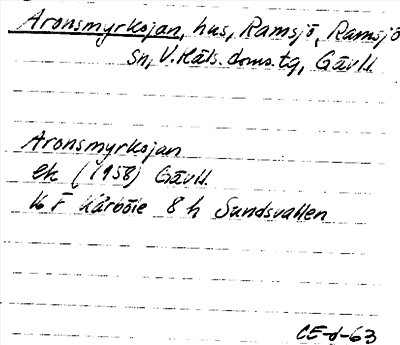 Aronsmyrkojan, hus, Ramsjö, Ramsjö
sn, V. Häls. doms. tg, Gävll.
Aronsmyrkojan
ek (1958) Gävll.
16 F Kårböle 8 h Sundsvallen
CE-d-63